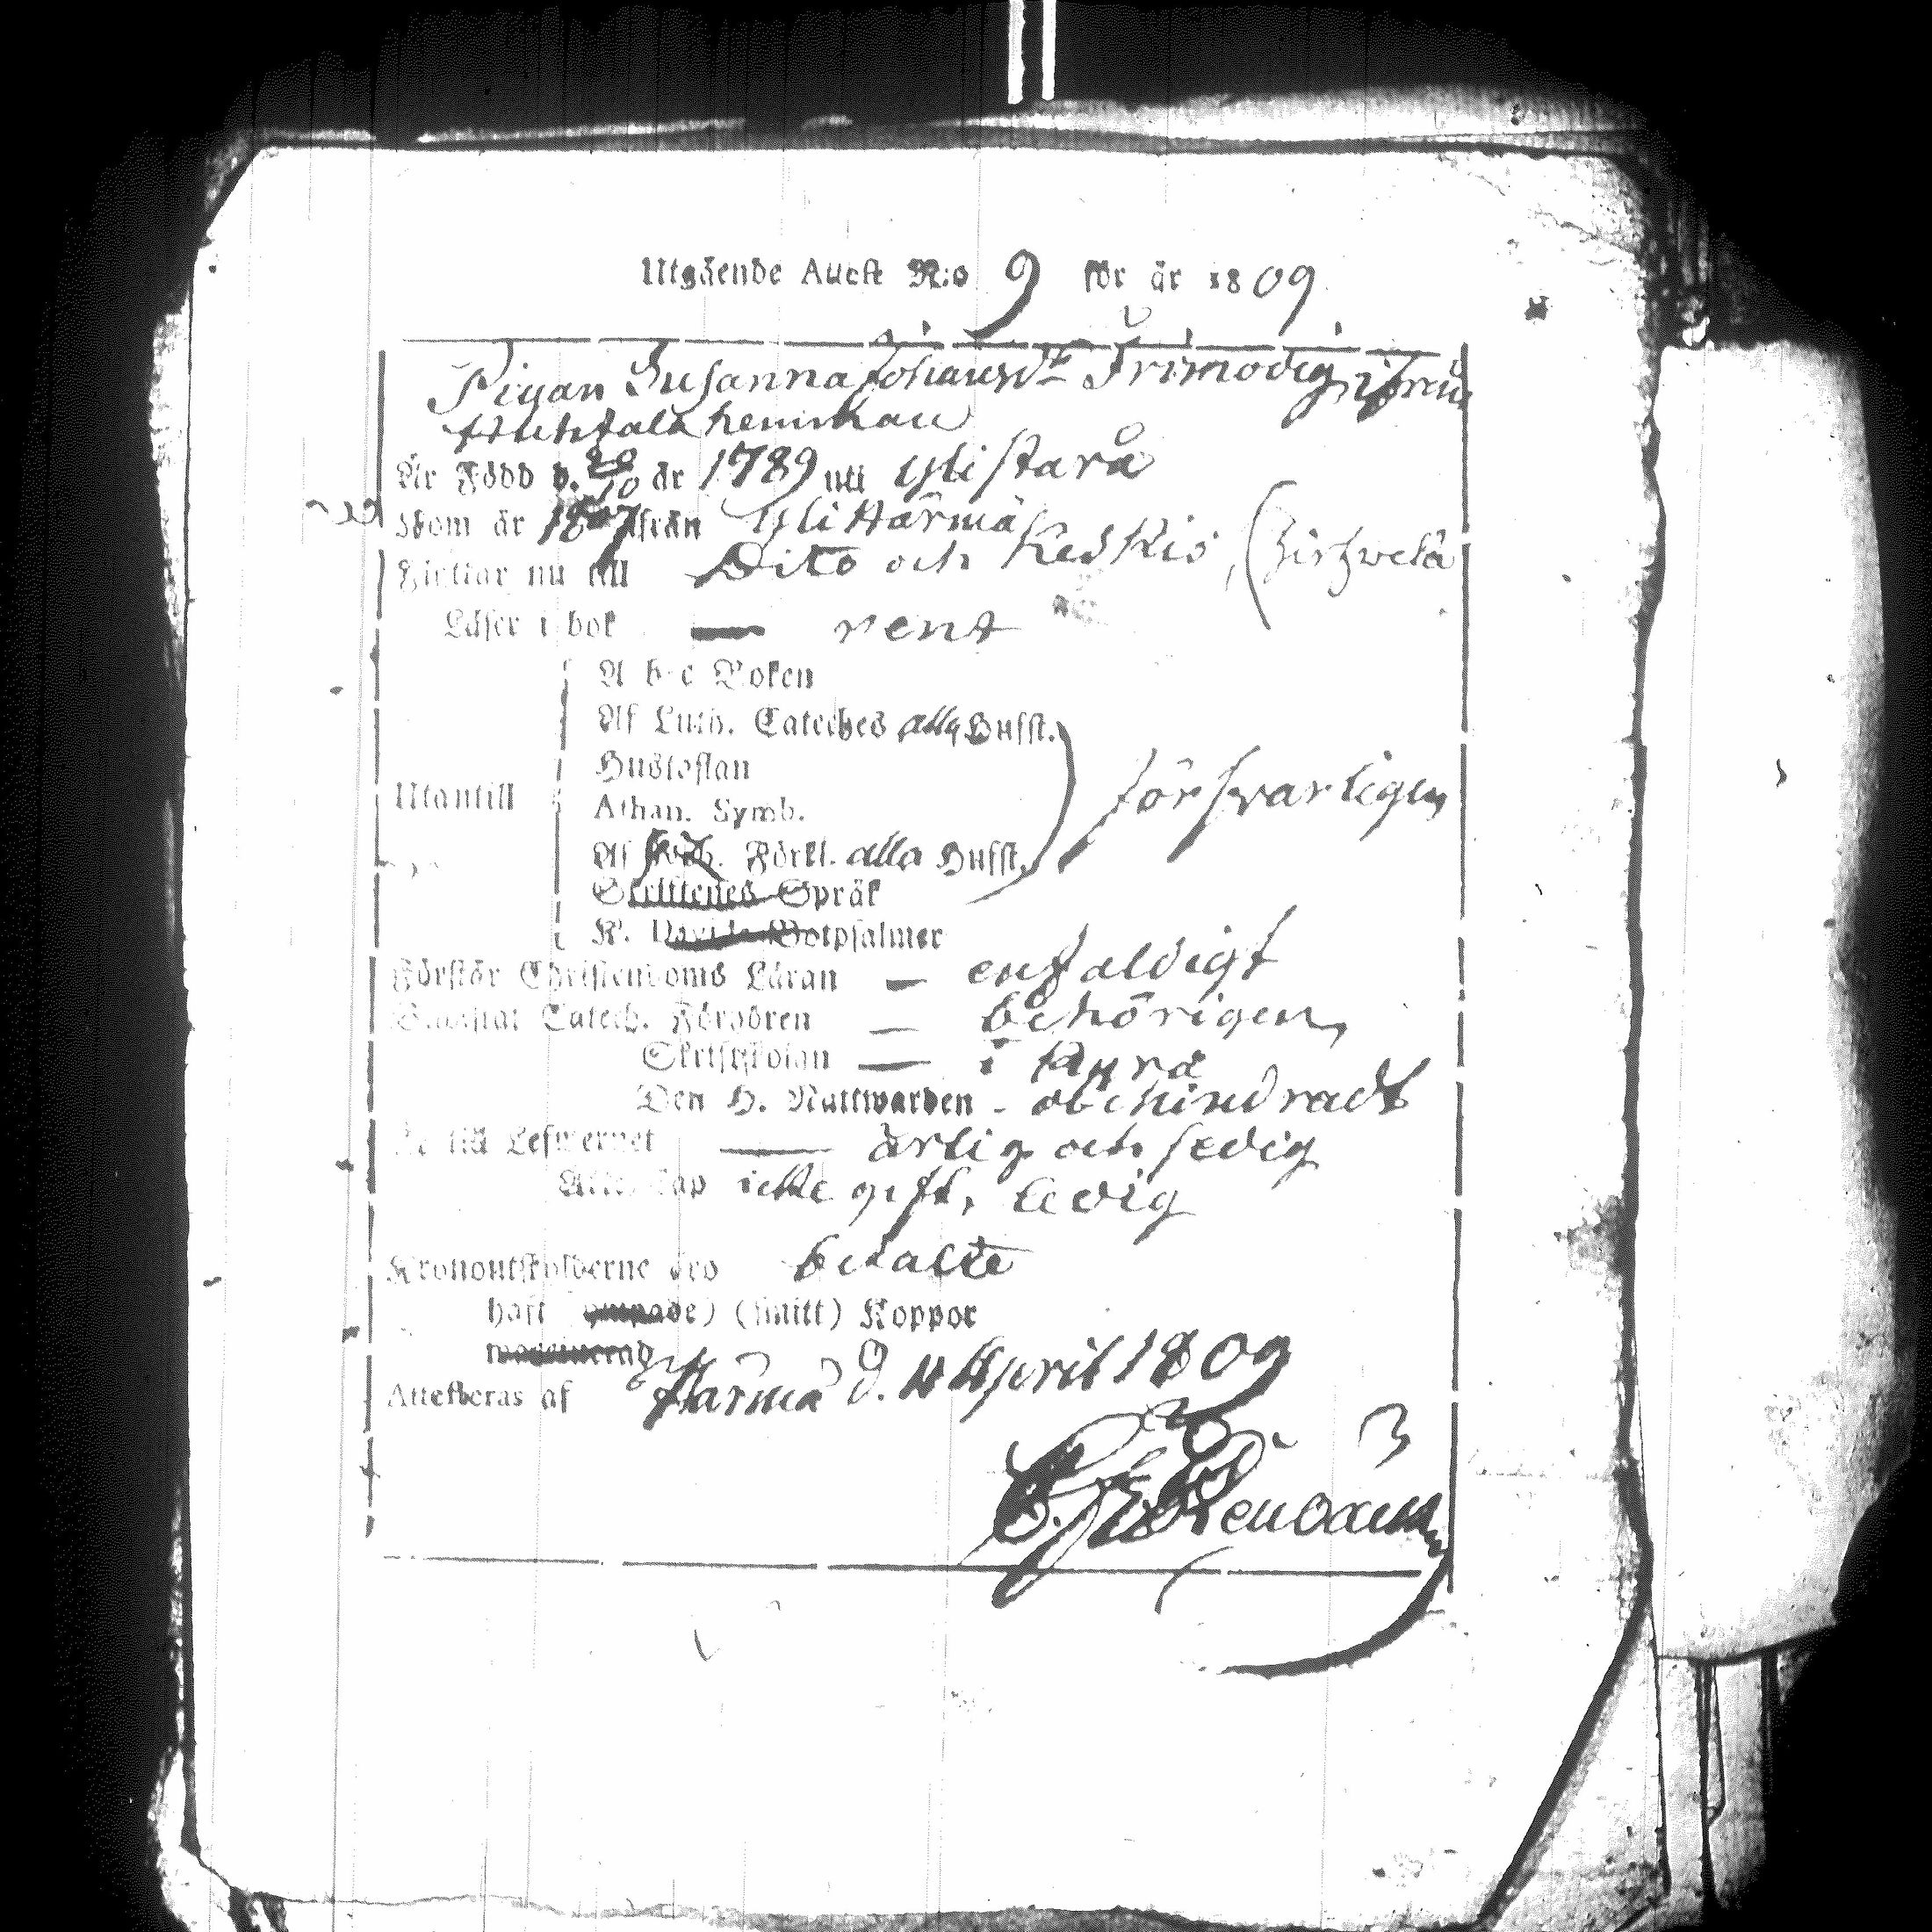 Utgående Attest N:o 9 för år 1809
Pigan Susanna Johansdr Frimodig ifrån
Huhtala hemman
Är Född d. 20/10 år 1789 uti Ylistaro
Kom år 1807 från Yli Härmä
Flyttar nu till Dito och Keskis,
Läser i bok — rent
A b c Boken
Af Luth. Cateches alla Hufst.
Hustaflan
Utantill Athan. Symb. försvarligen
Af Förkl. alla Hufst.
Skriftenes Språk
K. Davids Botpsalmer
Förstår Christendoms Läran — enfaldigt
Bewistat Catech. Förhören — behörigen
Skriftskolan — i Lappo
Den H. Nattwarden - obehindradt
Är till Lefwernet — ärlig och sedig
Äktenskap icke gift, ledig
Kronoutskylderne äro betalte
haft (ympade) (smitt) Koppor
waccinerad
Attesteras af Härmä d. 11 April 1809